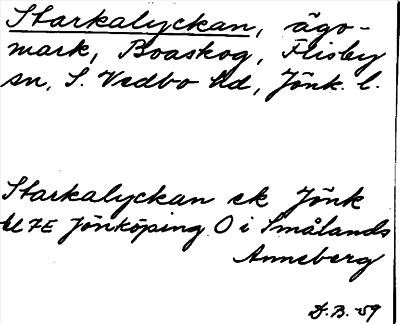 Starkalyckan, ägo-
mark, Boaskog, Flisby
sn, S. Vedbo hd, Jönk. l.
Starkalyckan ek Jönk
bl 7E Jönköping O i Smålands
Anneberg
D.B. -59